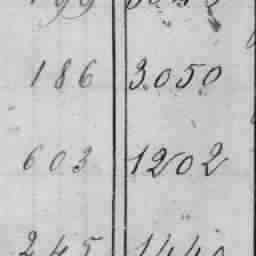 186 3050
603 1202
245 1440